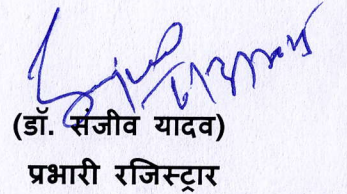 (डॉ. संजीव यादव)
प्रभारी रजिस्ट्रार